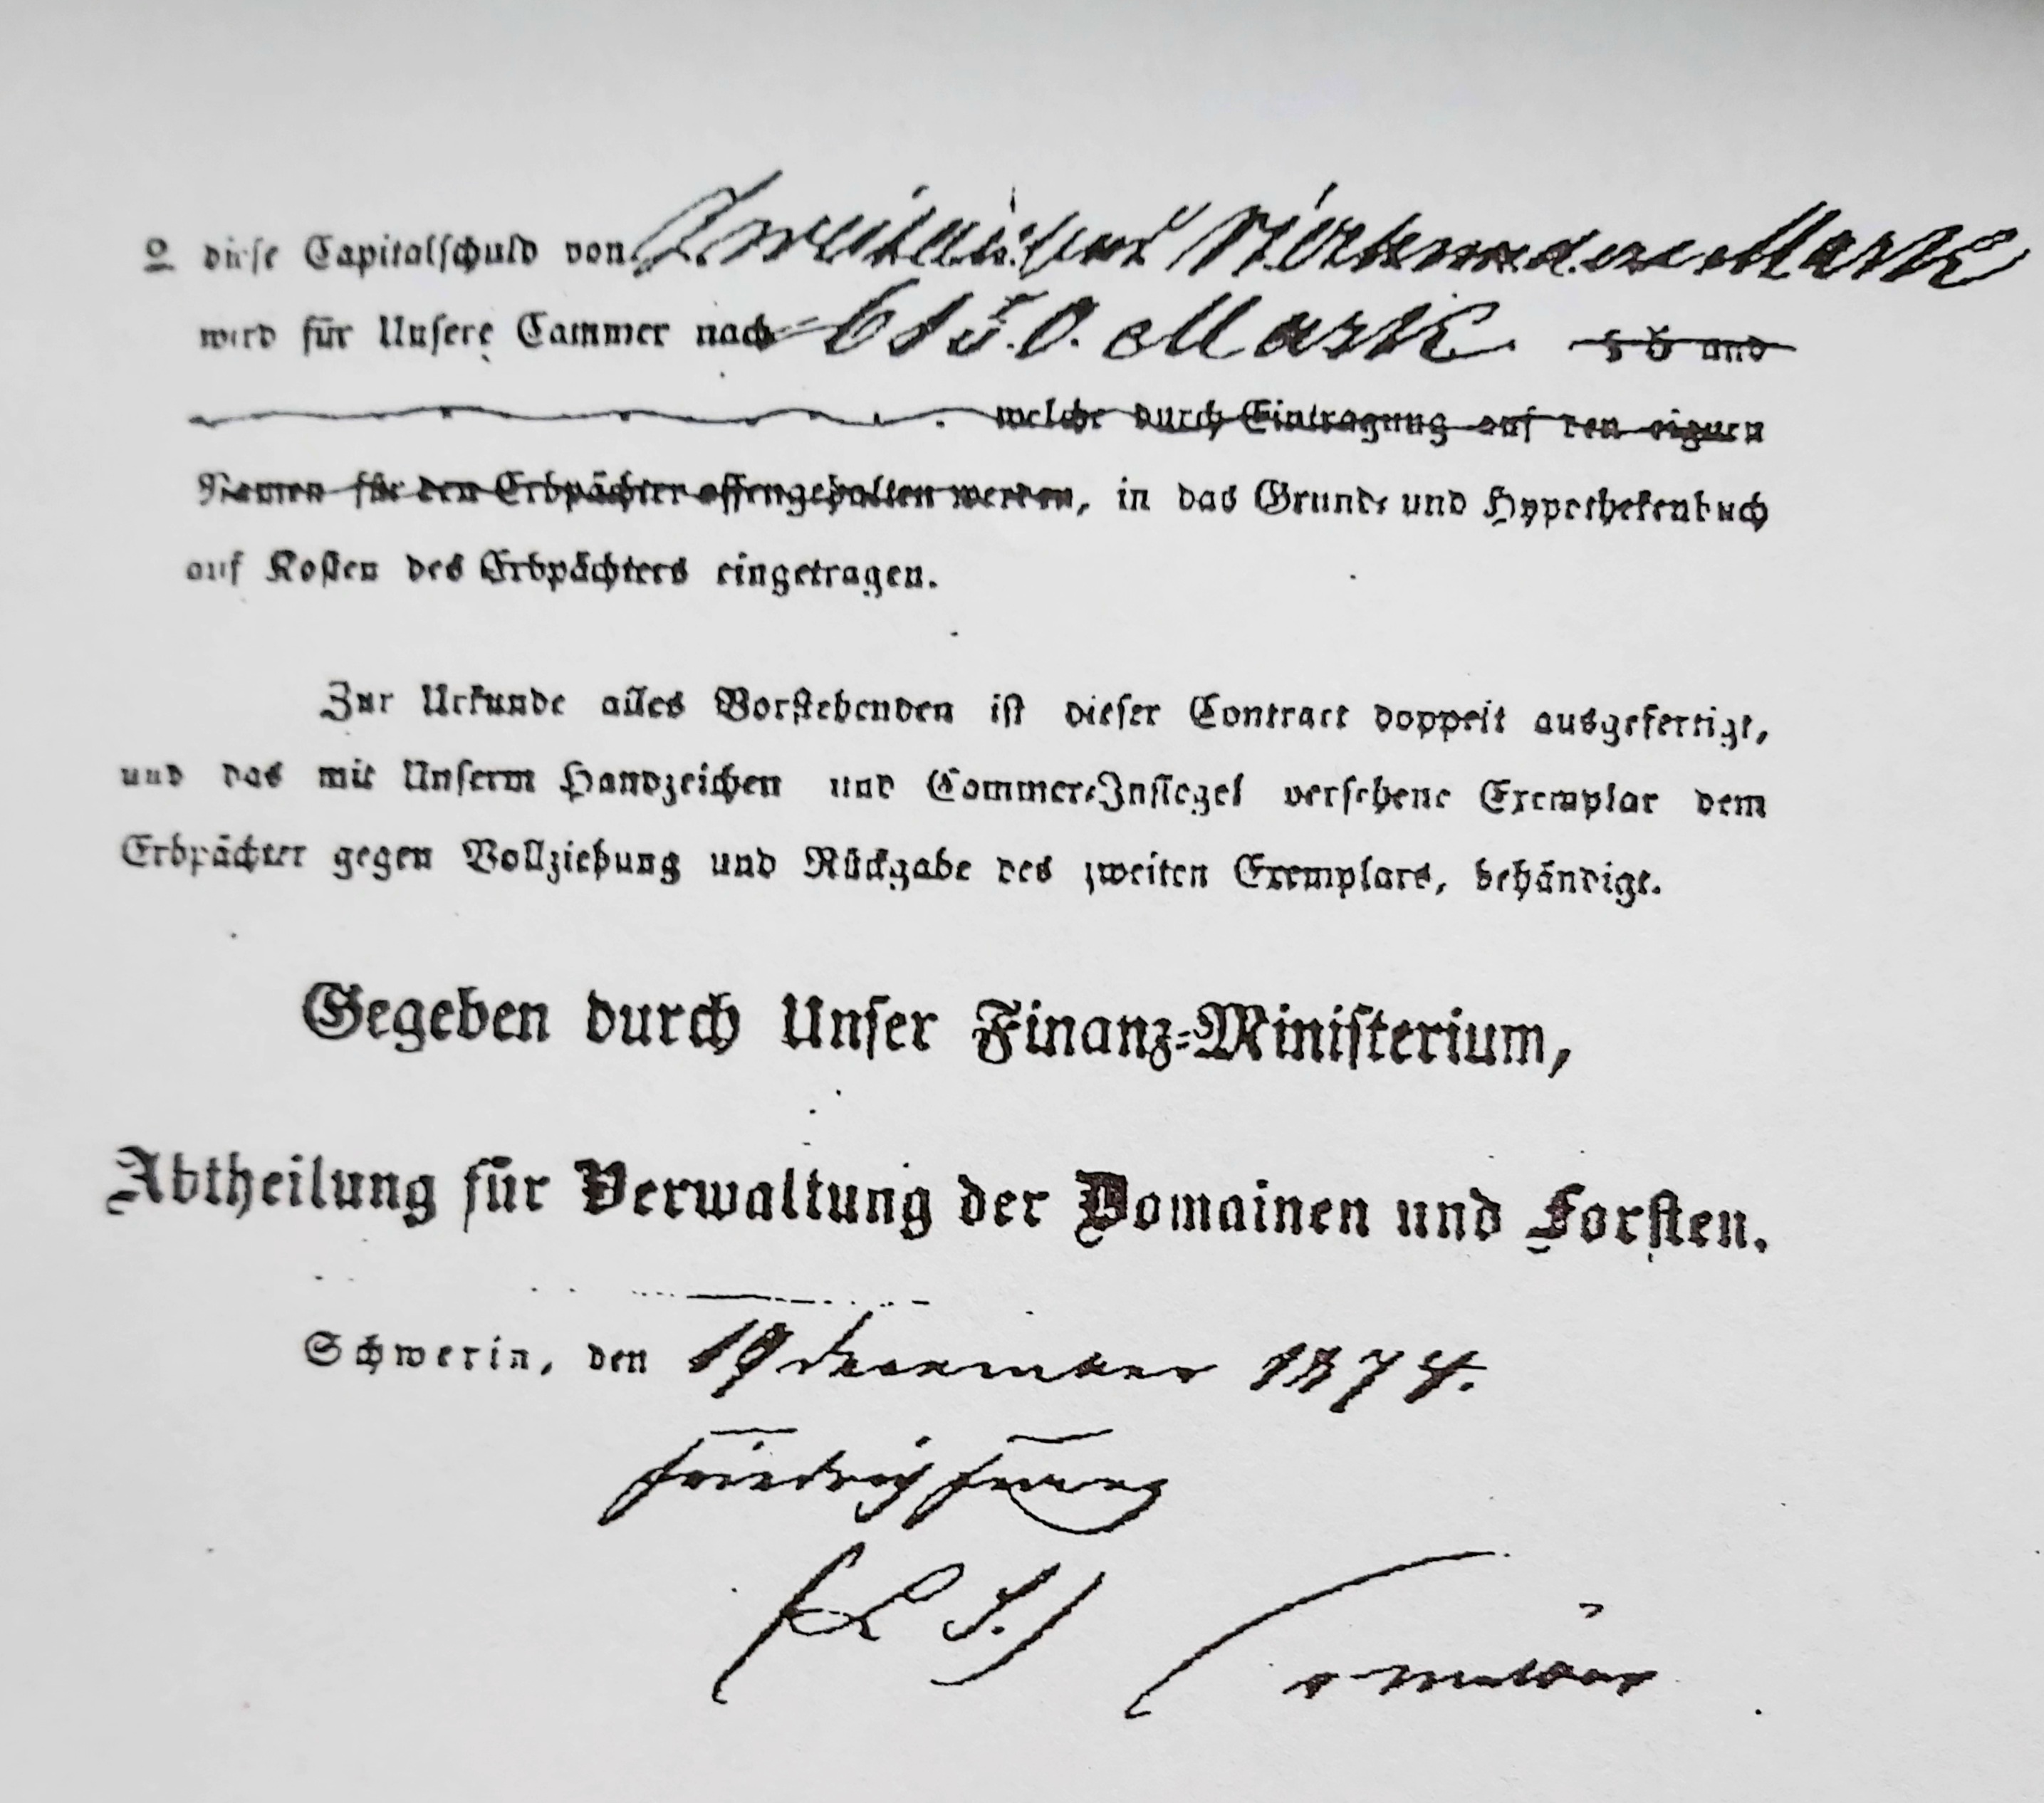 9 diese Capitalschuld von Zweitausend Vierhundert Mark
wird für Unsere Cammer nach 6150. Mark § 5 und
welche durch Eintragung auf den eignen
Namen für den Erbpächter offengehalten werden, in das Grund- und Hypothekenbuch
auf Kosten des Erbpächters eingetragen.
Zur Urkunde alles Vorstehenden ist dieser Contract doppelt ausgefertigt,
und das mit Unserm Handzeichen und Cammer-Insiegel versehene Exemplar dem
Erbpächter gegen Vollziehung und Rückgabe des zweiten Exemplars, behändigt.
Gegeben durch Unser Finanz-Ministerium,
Abtheilung für Verwaltung der Domainen und Forsten.
Schwerin, den 19 December 1874.
Friedrich Franz
(L S.)